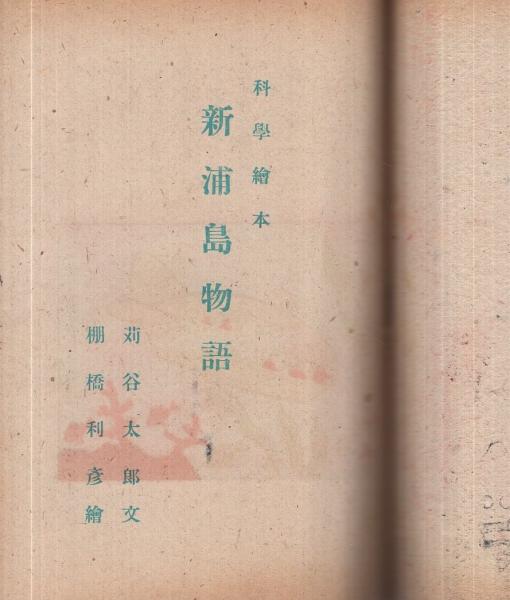 科學繪本
新浦島物語
苅谷太郎文
棚橋利彥繪